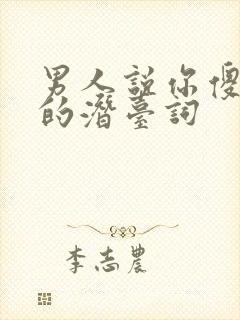 男人説你傻
的潛臺詞
李志農